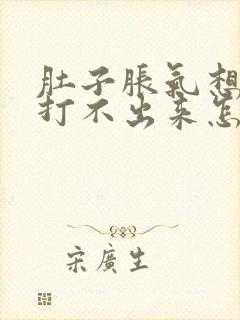 肚子脹氣想
打不出来怎
宋廣生